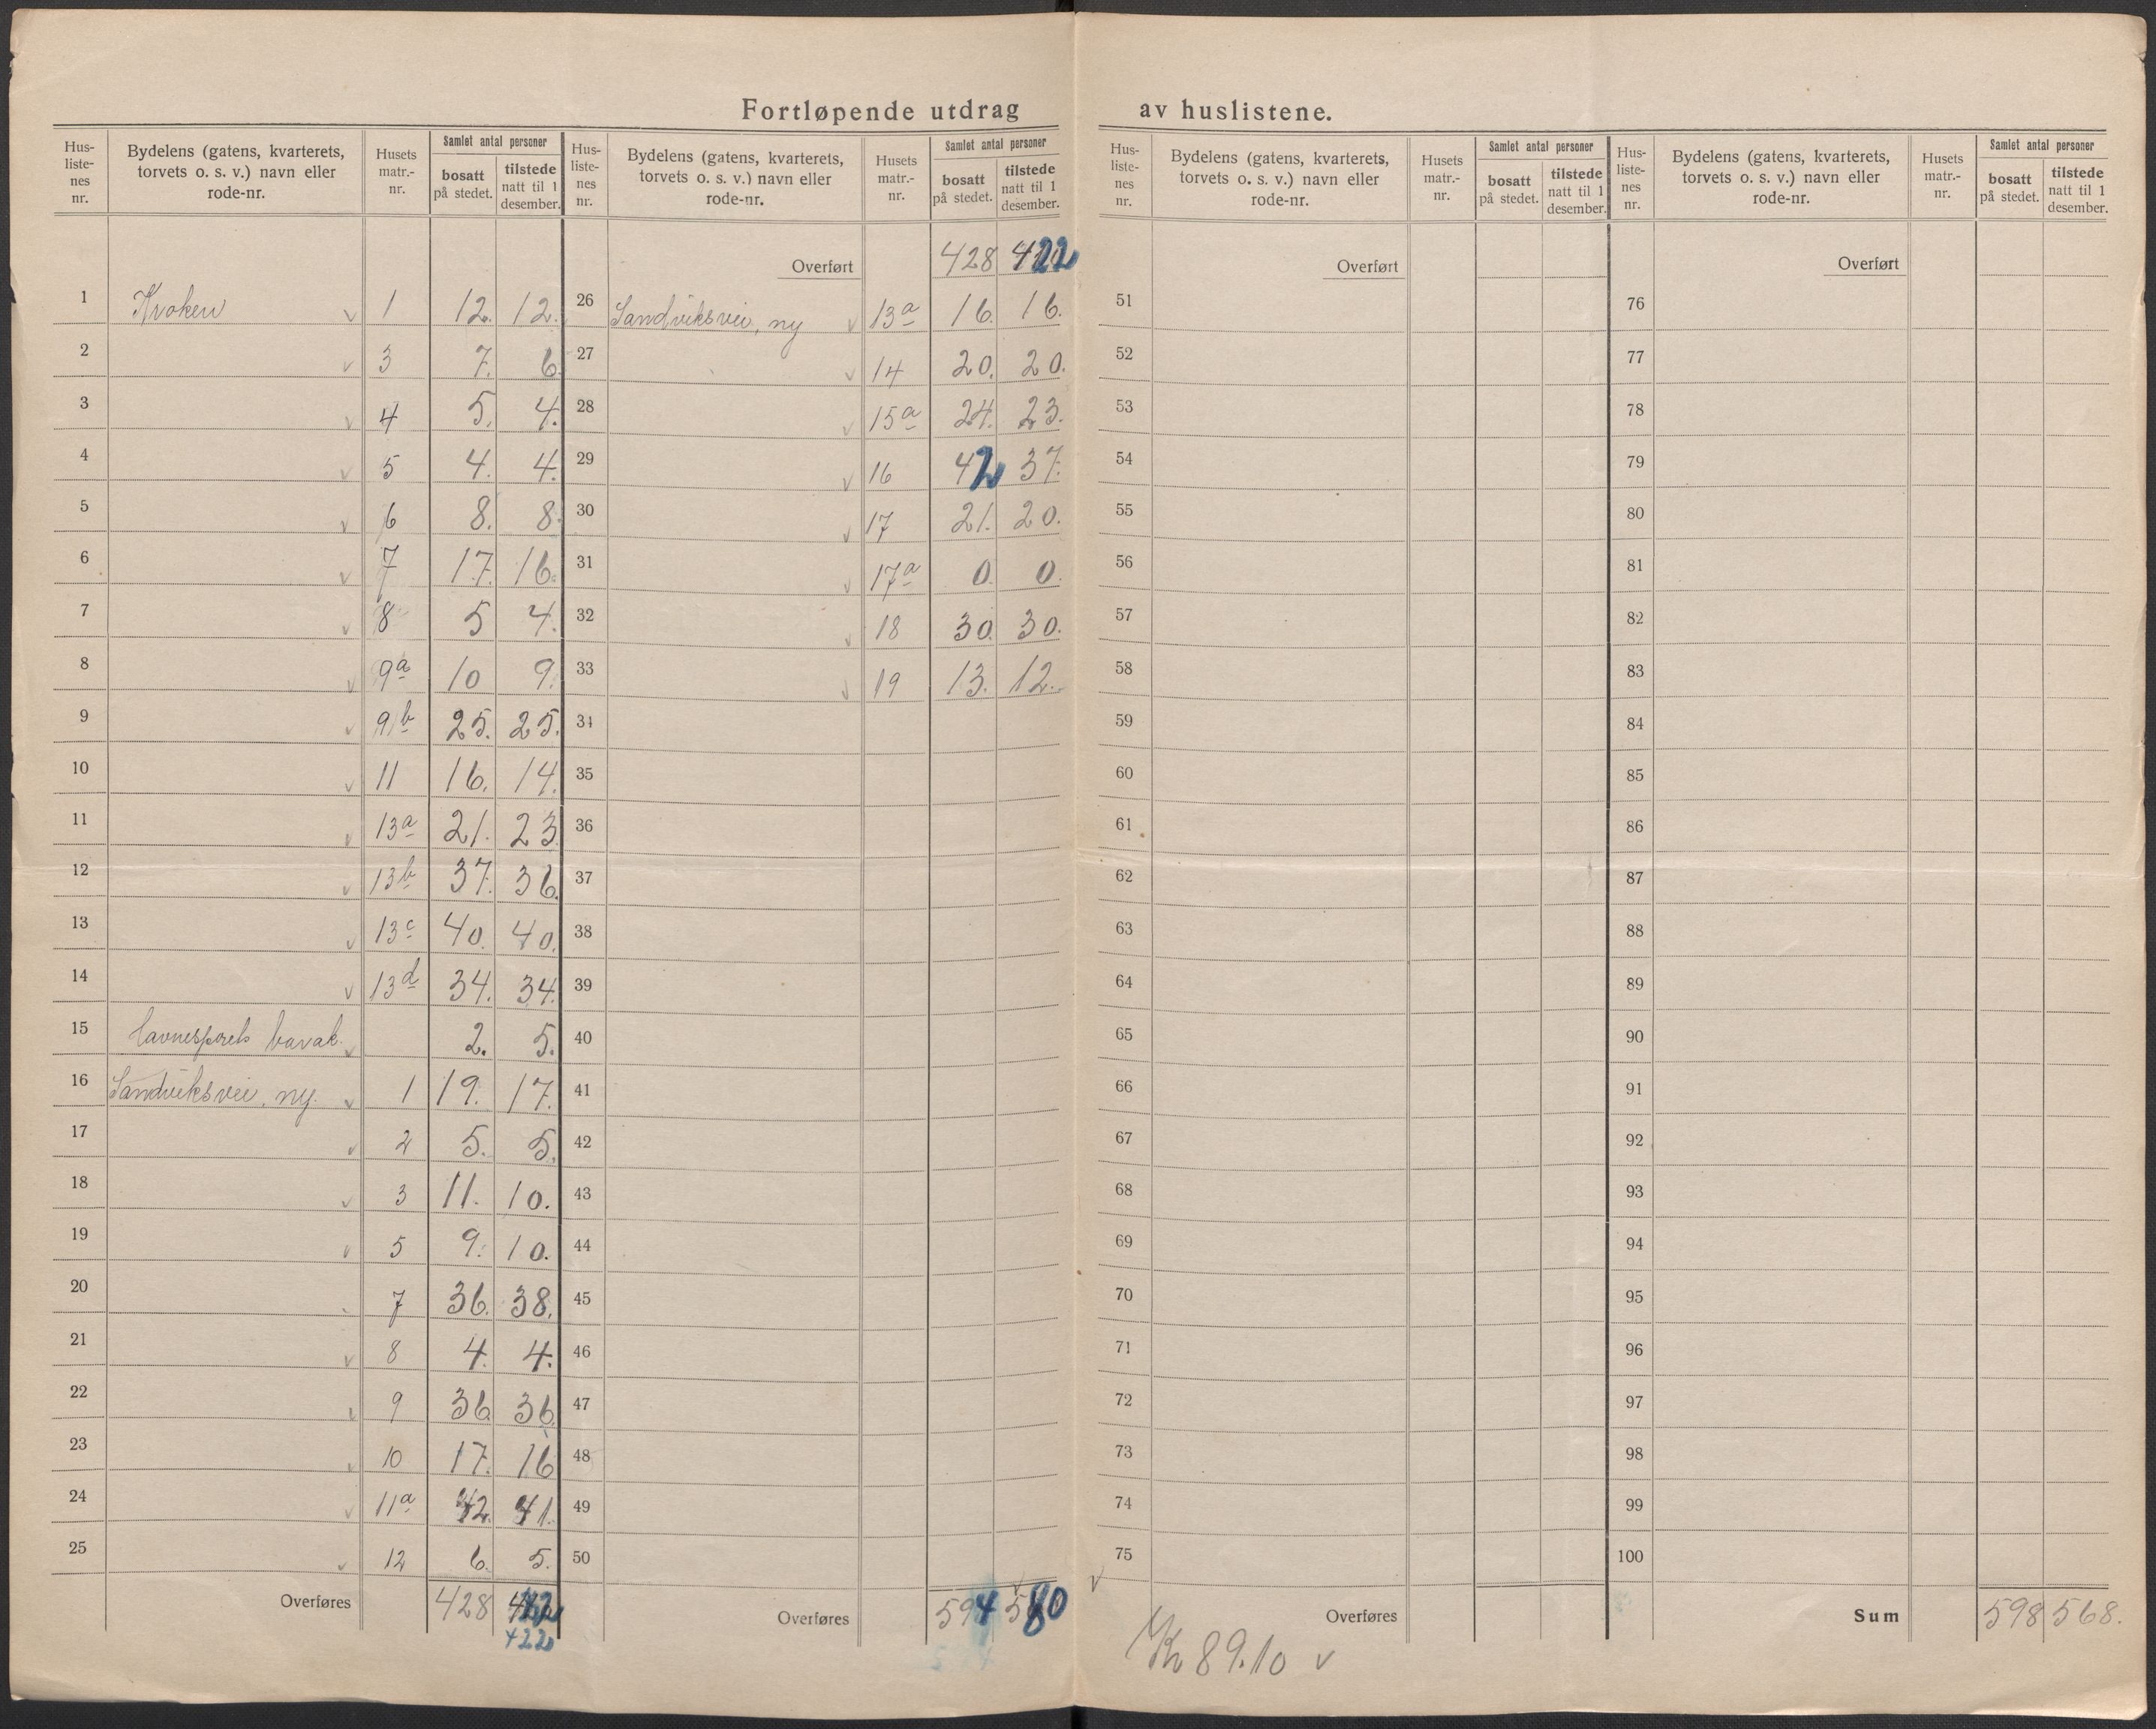 Fortløpende utdrag av huslistene.
Hus-liste-nes nr. | Bydelens (gatens, kvarterets, torvets o. s. v.) navn eller rode-nr. | Husets matr.-nr. | Samlet antal personer | bosatt på stedet. | tilstede natt til 1 desember.
1 Kroken v 1 12. 12.
2 v 3 7. 6.
3 v 4 5. 4.
4 v 5 4. 4.
5 v 6 8. 8.
6 v 7 17. 16.
7 v 8 5 4.
8 v 9a 10 9.
9 v 9b 25. 25.
10 v 11 16. 14.
11 v 13a 21. 23
12 v 13b 37. 36.
13 v 13c 40. 40.
14 v 13d 34. 34.
15 v 2. 5.
16 Sandviksvei, ny. v 1 19. 17.
17 v 2 5. 5.
18 v 3 11. 10.
19 v 5 9. 10.
20 7 36. 38.
21 v 8 4. 4.
22 v 9 36 36.
23 v 10 17. 16
24 v 11a 42. 41.
25 v 12 6. 5.
Overføres 428
422
Hus-liste-nes nr. | Bydelens (gatens, kvarterets, torvets o. s. v.) navn eller rode-nr. | Husets matr.-nr. | Samlet antal personer | bosatt på stedet. | tilstede natt til 1 desember.
Overført 428 422
26 Sandviksvei, ny v 13a 16. 16.
27 v 14 20. 20.
28 v 15a 24. 23.
29 v 16 42 37.
30 v 17 21. 20.
31 v 17a 0. 0.
32 v 18 30. 30.
33 v 19 13. 12.
34
35
36
37
38
39
40
41
42
43
44
45
46
47
48
49
50
Overføres 594 580
Hus-liste-nes nr. | Bydelens (gatens, kvarterets, torvets o. s. v.) navn eller rode-nr. | Husets matr.-nr. | Samlet antal personer | bosatt på stedet. | tilstede natt til 1 desember.
Overført
51
52
53
54
55
56
57
58
59
60
61
62
63
64
65
66
67
68
69
70
71
72
73
74
75
v
Overføres
Kr 89.10 v
Hus-liste-nes nr. | Bydelens (gatens, kvarterets, torvets o. s. v.) navn eller rode-nr. | Husets matr.-nr. | Samlet antal personer | bosatt på stedet. | tilstede natt til 1 desember.
Overført
76
77
78
79
80
81
82
83
84
85
86
87
88
89
90
91
92
93
94
95
96
97
98
99
100
Sum 598 568.